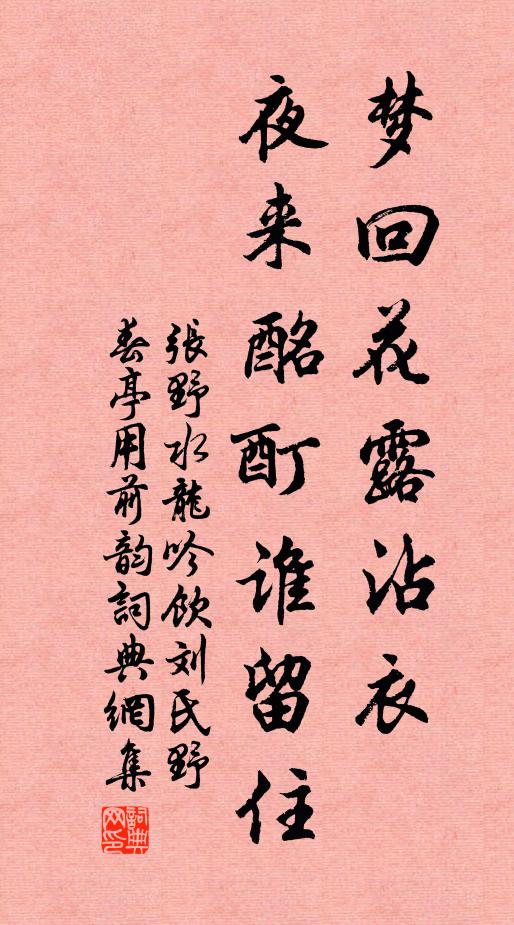 梦回花露沾衣
夜来酩酊谁留住
張野水龍吟飲刘氏野
春亭用前韵詞典網集
詞典网印